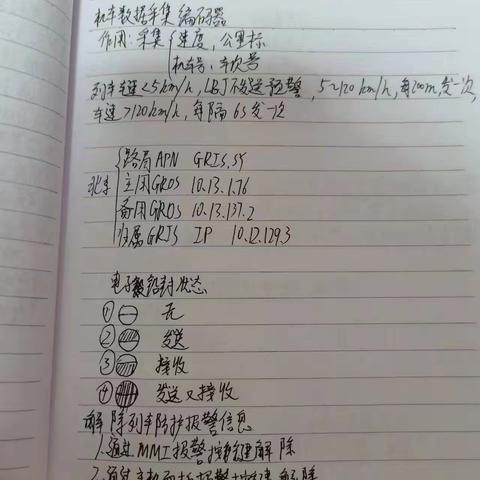 机车数据采集编码器
作用：采集{速度，公里标
机车号，车次号
列车车速<5km/h，LBJ不发送预警，5~120km/h，每200m发一次，
车速>120km/h，每隔6S发一次
路局APN GRIS.SY
北京 主用GROS 10.13.1.76
备用GROS 10.13.137.2
归属GRIS IP 10.12.129.3
电子铅封状态
① 无
② 发送
③ 接收
④ 发送又接收
解除列车防护报警信息
1.通过MMI报警按键解除
2.通过主机面板报警按键解除